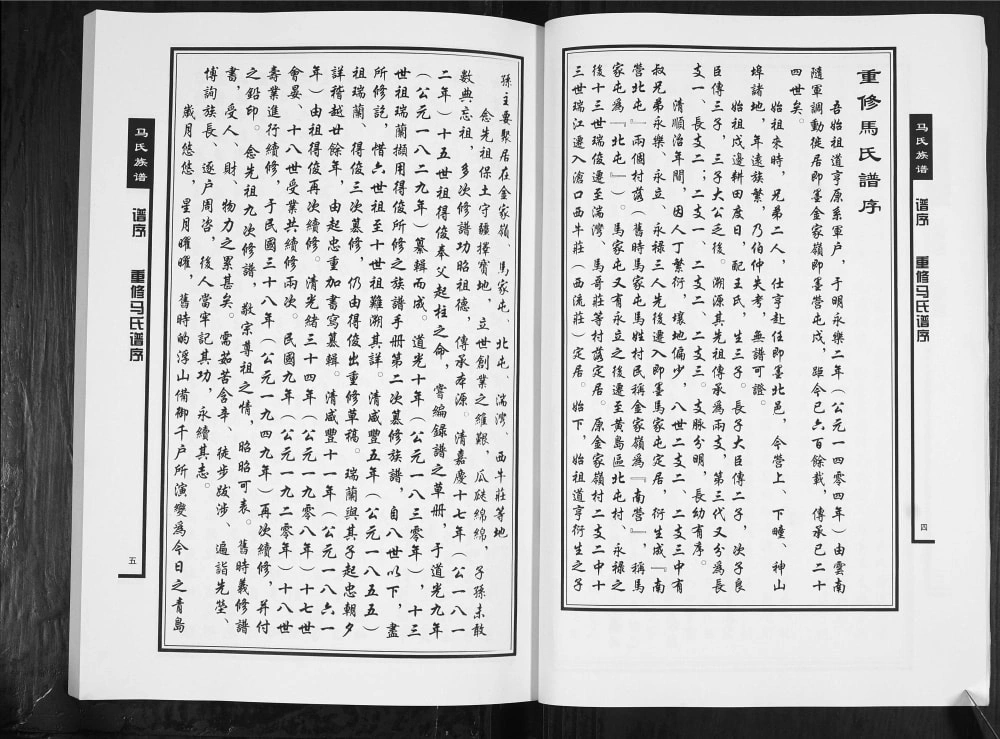 马氏族谱
谱序
重修马氏谱序
四
重修馬氏譜序
吾始祖道亨原系軍户，于明永樂二年（公元一四零四年）由雲南
隨軍調動徙居即墨金家嶺即墨營屯戍，距今已六百餘載，傳承已二十
四世矣。
始祖來時，兄弟二人，仕亨赴任即墨北邑，今營上、下疃、神山
埠諸地，年遠族繁，乃伯仲失考，無譜可證。
始祖戍邊耕田度日，配王氏，生三子。長子大臣傳二子，次子良
臣傳三子，三子大公乏後。溯源其先祖傳承爲兩支，第三代又分爲長
支一、長支二；二支一、二支二、二支三。支脈分明，長幼有序。
清順治年間，因人丁繁衍，壤地偏少，八世二支二、二支三中有
叔兄弟永樂、永立、永禄三人先後遷入即墨馬家屯定居，衍生成『南
營北屯』兩個村落（舊時馬家屯馬姓村民稱金家嶺爲『南營』，稱馬
家屯爲『北屯』）。馬家屯又有永立之後遷至黄島區北屯村、永禄之
後十三世瑞俊遷至湍灣、馬哥莊等村落定居。原金家嶺村二支二中十
三世瑞江遷入滄口西牛莊（西流莊）定居。始下，始祖道亨衍生之子
孫主要聚居在金家嶺、馬家屯、北屯、湍灣、西牛莊等地
念先祖保土守疆擇寶地，立世創業之維艱，瓜瓞綿綿，子孫未敢
數典忘祖，多次修譜功昭祖德，傳承本源。清嘉慶十七年（公一八一
二年）十五世祖得俊奉父起柱之命，嘗編録譜之草册，于道光九年
（公元一八二九年）纂輯而成。道光十年（公元一八三零年），十三
世祖瑞蘭擷用得俊所修之族譜手册第二次纂修族譜，自八世以下，盡
所修詑，惜六世祖至十世祖難溯其詳。清咸豐五年（公元一八五五）
祖瑞蘭、得俊三次纂修，仍由得俊出重修草稿。瑞蘭與其子起忠朝夕
詳稽越廿餘年，由起忠重加書寫纂輯。清咸豐十一年（公元一八六一
年）由祖得俊再次續修。清光緒三十四年（公元一九零八年）十七世
會晏、十八世受業共續修兩次。民國九年（公元一九二零年）十八世
壽業進行續修，于民國三十八年（公元一九四九年）再次續修，并付
之鉛印。念先祖九次修譜，敬宗尊祖之情，昭昭可表。舊時義修譜
書，受人、財、物力之累甚矣。需茹苦含辛、徒步跋涉、遍詣先塋、
博詢族長、逐户周咨，後人當牢記其功，永續其志。
歲月悠悠，星月曜曜，舊時的浮山備御千户所演變爲今日之青島
马氏族谱
谱序
重修马氏谱序
五